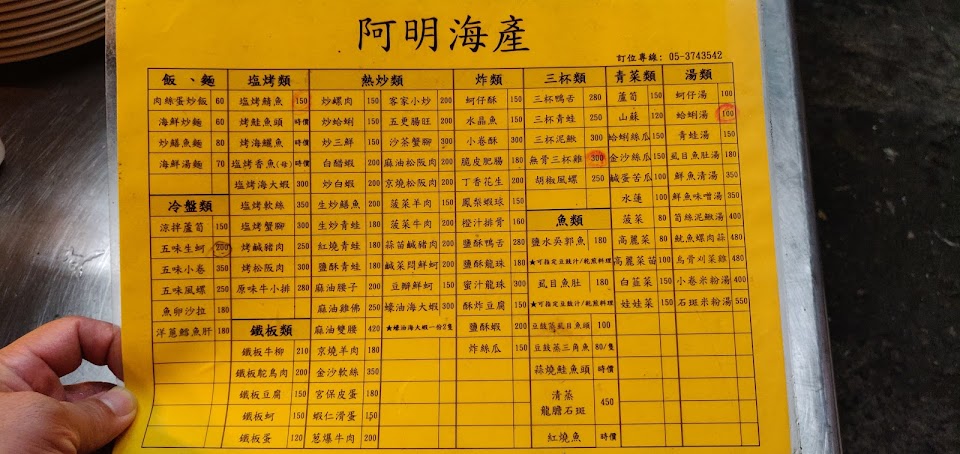 阿明海產
訂位專線: 05-3743542
飯、麵
肉絲蛋炒飯 60
海鮮炒麵 60
炒鱔魚麵 80
海鮮湯麵 70
冷盤類
涼拌蘆筍 150
五味生蚵 200
五味小卷 350
五味風螺 250
魚卵沙拉 180
洋蔥鱈魚肝 180
塩烤類
塩烤鯖魚 150
烤鮭魚頭 時價
烤海鱺魚 時價
塩烤香魚(母) 時價
塩烤海大蝦 300
塩烤軟絲 350
塩烤蟹腳 300
烤鹹豬肉 250
烤松阪肉 300
原味牛小排 280
鐵板類
鐵板牛柳 210
鐵板鴕鳥肉 200
鐵板豆腐 150
鐵板蚵 150
鐵板蛋 120
熱炒類
炒螺肉 150
炒蛤蜊 150
炒三鮮 150
白醋蝦 200
炒白蝦 200
生炒鱔魚 180
生炒青蛙 180
紅燒青蛙 180
鹽酥青蛙 180
麻油腰子 200
麻油雞佛 250
麻油雙腰 420
京燒羊肉 180
金沙軟絲 350
宮保皮蛋 180
蝦仁滑蛋 150
蔥爆牛肉 200
客家小炒 200
五更腸旺 200
沙茶蟹腳 300
麻油松阪肉 200
京燒松阪肉 200
菠菜羊肉 150
菠菜牛肉 200
蒜苗鹹豬肉 200
鹹菜悶鮮蚵 200
豆瓣鮮蚵 150
蠔油海大蝦 300
★蠔油海大蝦一份2隻
炸類
蚵仔酥 150
水晶魚 150
小卷酥 300
脆皮肥腸 180
丁香花生 200
鳳梨蝦球 150
橙汁排骨 160
鹽酥鴨舌 280
鹽酥龍珠 300
蜜汁龍珠 300
酥炸豆腐 150
鹽酥蝦 200
炸絲瓜 150
三杯類
三杯鴨舌 280
三杯青蛙 250
三杯泥鰍 300
無骨三杯雞 300
胡椒風螺 250
魚類
鹽水吳郭魚 180
★可指定豆豉汁/乾煎料理
虱目魚肚 180
★可指定豆豉汁/乾煎料理
豆豉蒸虱目魚頭 100
豆豉蒸三角魚 80/隻
蒜燒鮭魚頭 時價
清蒸
龍膽石斑 450
紅燒魚 時價
青菜類
蘆筍 150
山蘇 120
蛤蜊絲瓜 150
金沙絲瓜 150
鹹蛋苦瓜 150
水蓮 100
菠菜 80
高麗菜 80
高麗菜苗 100
白韮菜 150
娃娃菜 150
湯類
蚵仔湯 100
蛤蜊湯 100
青蛙湯 150
虱目魚肚湯 180
鮮魚清湯 350
鮮魚味噌湯 350
筍絲泥鰍湯 400
魷魚螺肉蒜 480
烏骨刈菜雞 480
小卷米粉湯 400
石斑米粉湯 550